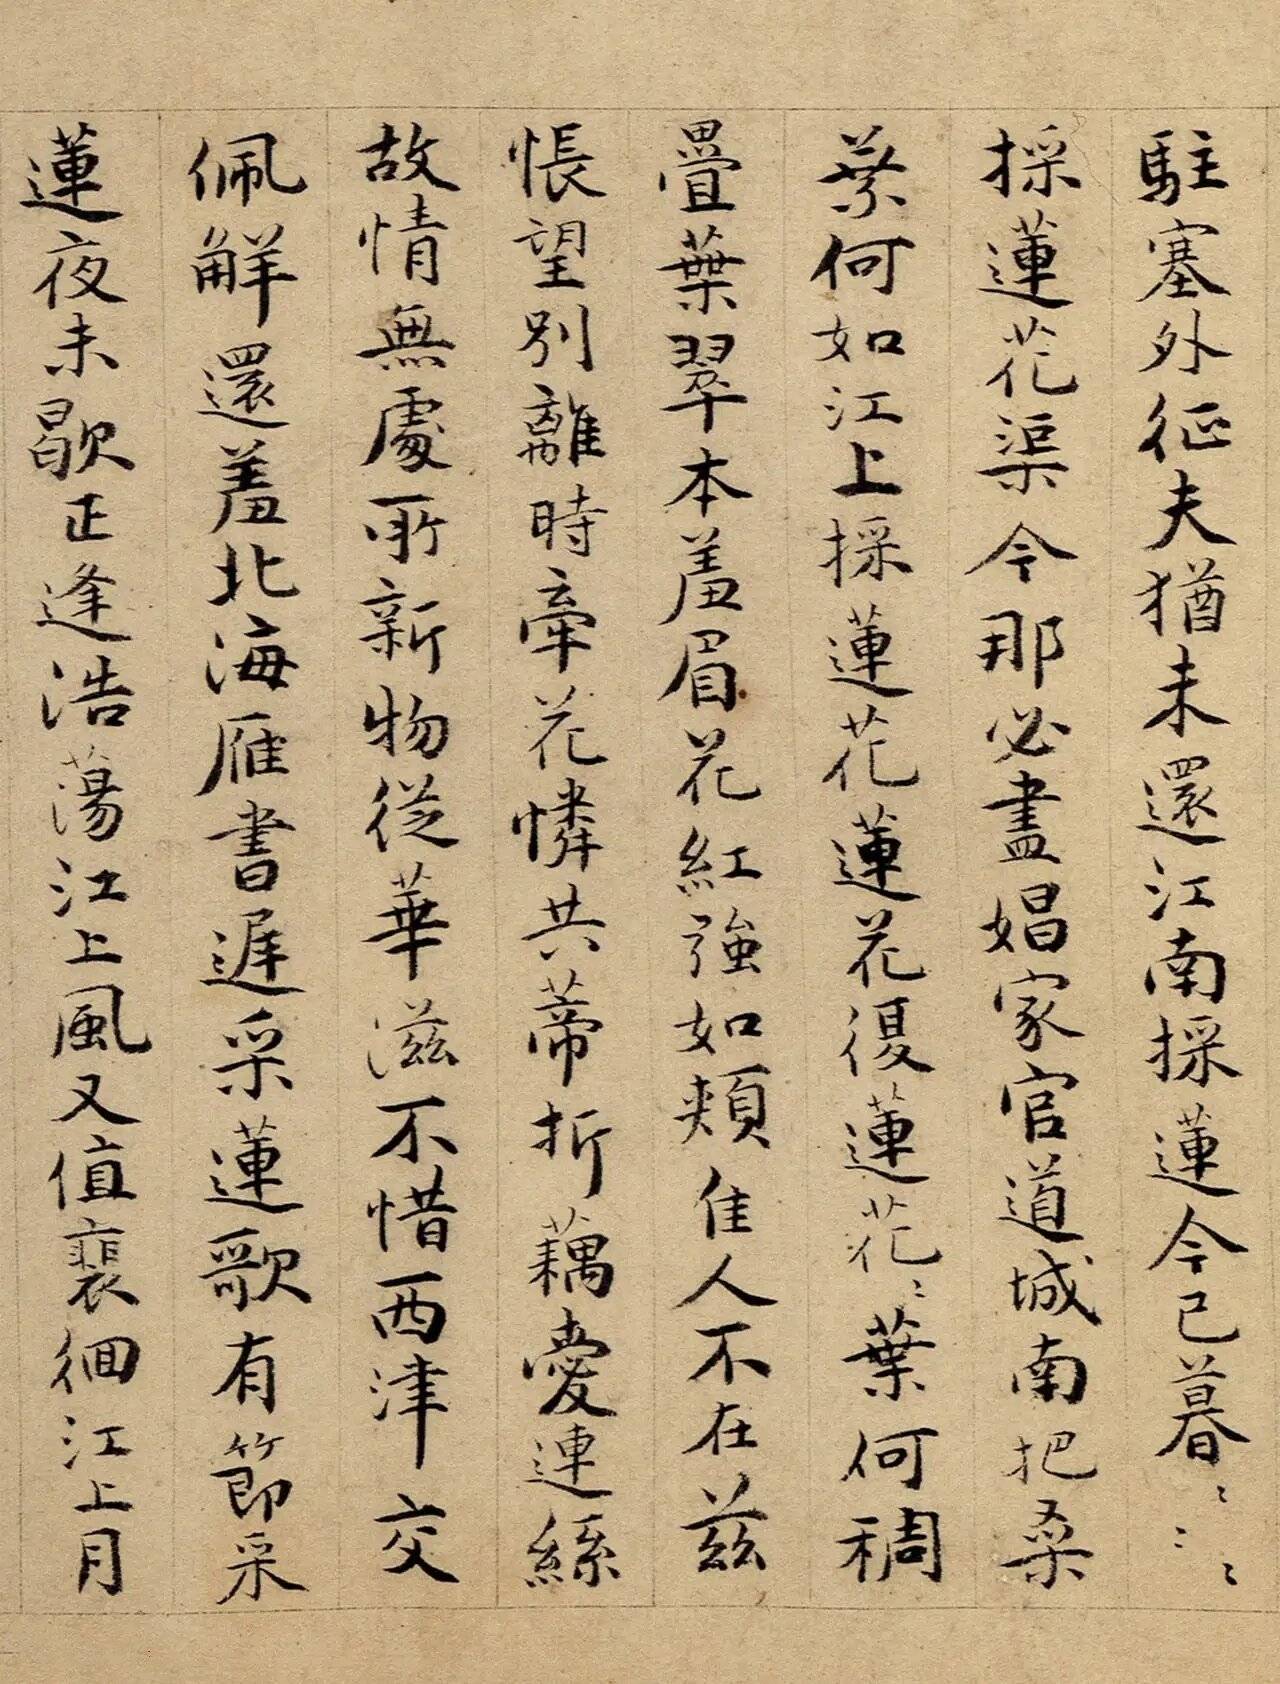 駐塞外征夫猶未還江南採蓮今已暮〻〻〻
採蓮花渠今那必盡娼家官道城南把桑
葉何如江上採蓮花蓮花復蓮花〻葉何稠
疊葉翠本羞眉花紅強如頰佳人不在茲
悵望別離時牽花憐共蒂折藕愛連絲
故情無處所新物從華滋不惜西津交
佩解還羞北海雁書遲采蓮歌有節采
蓮夜未歇正逢浩蕩江上風又值裴徊江上月